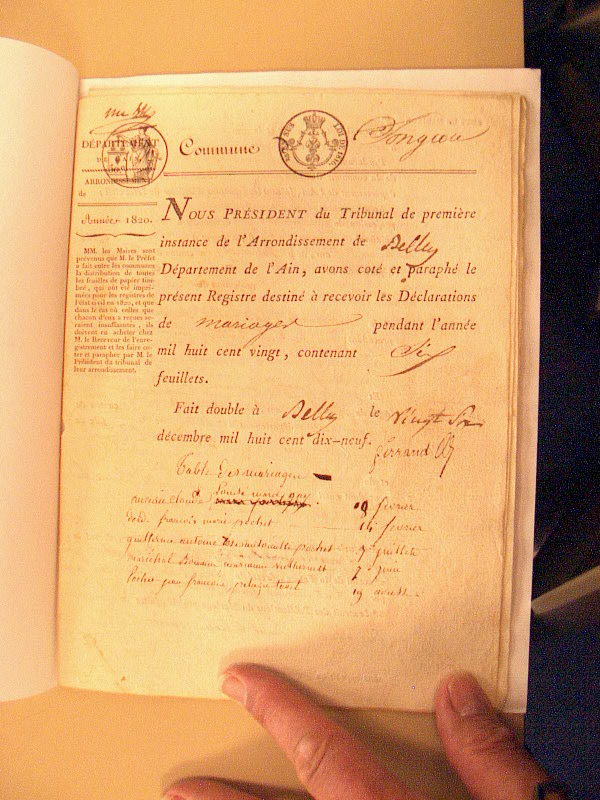 DÉPARTEMENT
DE L'AIN.
ARRONDISSEMENT
de
Commune
Songieu
Année 1820.
MM. les Maires sont
prévenus que M. le Préfet
a fait entre les communes
la distribution de toutes
les feuilles de papier timbré,
qui ont été imprimées
pour les registres de
l'état civil en 1820, et que
dans le cas où celles que
chacun d'eux a reçues seraient
insuffisantes, ils
doivent en acheter chez
M. le Receveur de l'enregistrement
et les faire coter
et parapher par M. le
Président du tribunal de
leur arrondissement.
NOUS PRÉSIDENT du Tribunal de première
instance de l'Arrondissement de Belley
Département de l'Ain, avons coté et paraphé le
présent Registre destiné à recevoir les Déclarations
de mariages pendant l'année
mil huit cent vingt, contenant Six
feuillets.
Fait double à Belley le Vingt Six
décembre mil huit cent dix-neuf.
Table des mariages
claude Louise marie 19 février
françois marie pochet 14 fevrier
guillerme antoine pochet 9 juillete
maréchal marianne 7 juin
pochet jean françois